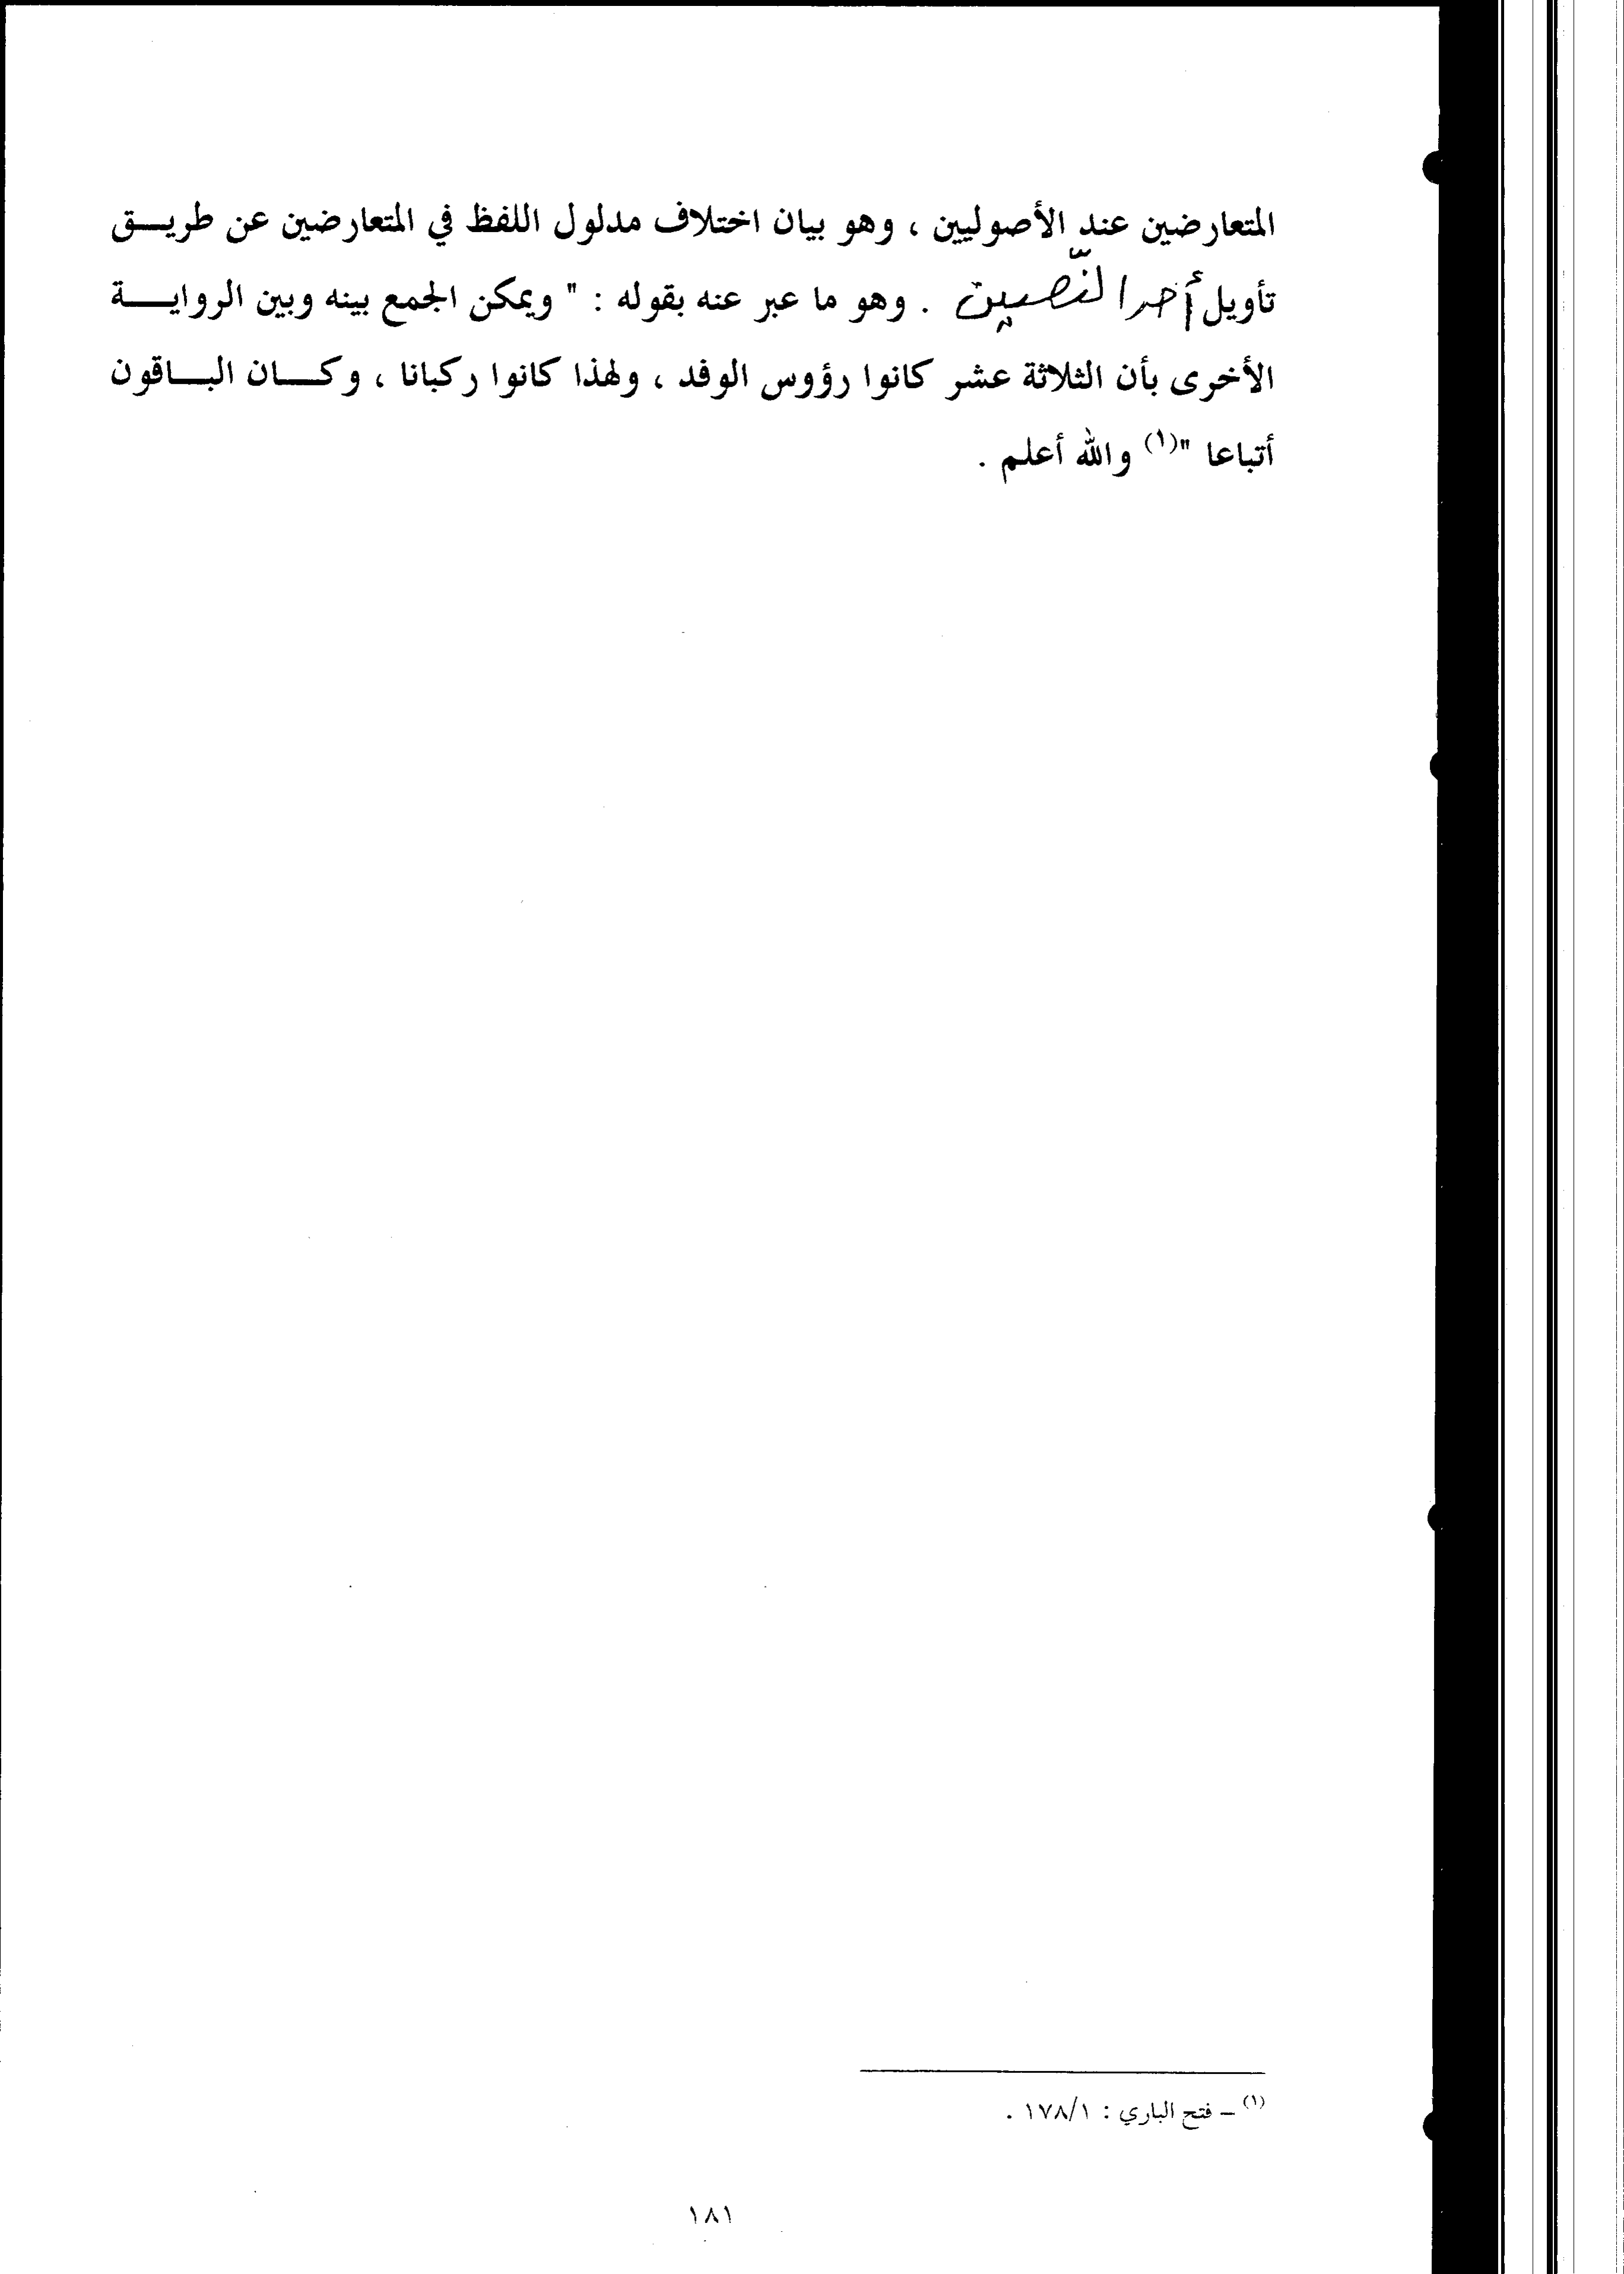 المتعارضين عند الأصوليين ، وهو بيان اختلاف مدلول اللفظ في المتعارضين عن طريق
تأويل أحد النّصين . وهو ما عبر عنه بقوله : " ويمكن الجمع بينه وبين الرواية
الأخرى بأن الثلاثة عشر كانوا رؤوس الوفد ، ولهذا كانوا ركبانا ، وكان الباقون
أتباعا "(١) والله أعلم .
(١) – فتح الباري : ١٧٨/١ .
١٨١